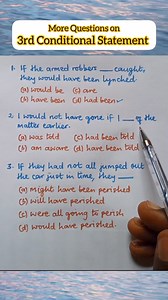 More Questions on
3rd Conditional Statement
1. If the armed robbers ___ caught,
they would have been lynched.
(a) would be (c) are
(b) have been (d) had been ✓
2. I would not have gone if I ___ of the
matter earlier.
(a) was told (c) had been told
(b) am aware (d) have been told
3. If they had not all jumped out
the car just in time, they ___
(a) might have been perished
(b) will have perished
(c) were all going to perish
(d) would have perished.